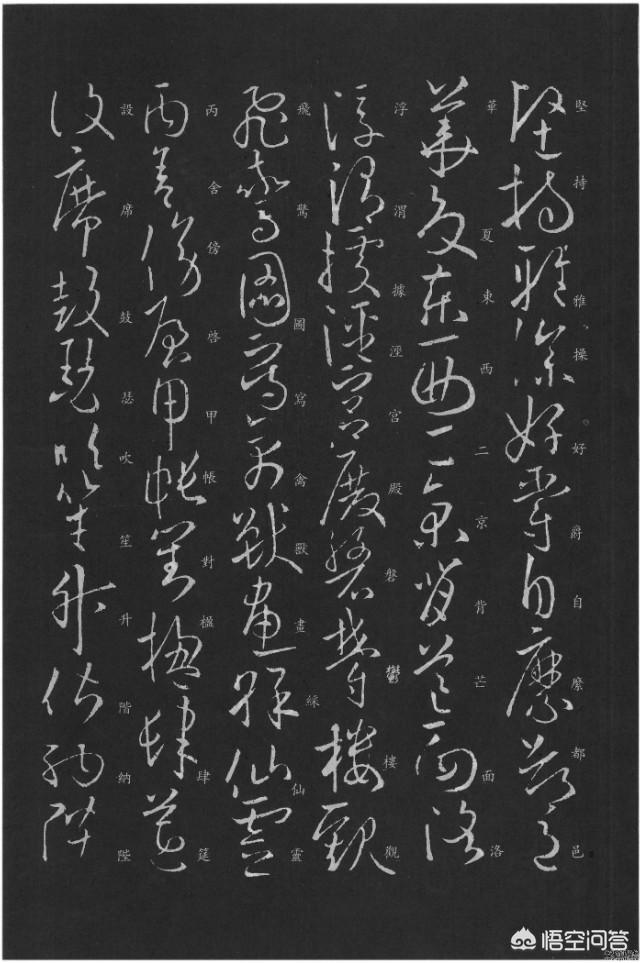 堅持雅操好爵自縻都邑
華夏東西二京背芒面洛
浮渭據涇宮殿磐鬱樓觀
飛驚圖寫禽獸畫綵仙靈
丙舍傍啓甲帳對楹肆筵
設席鼓瑟吹笙升階納陛
悟空问答